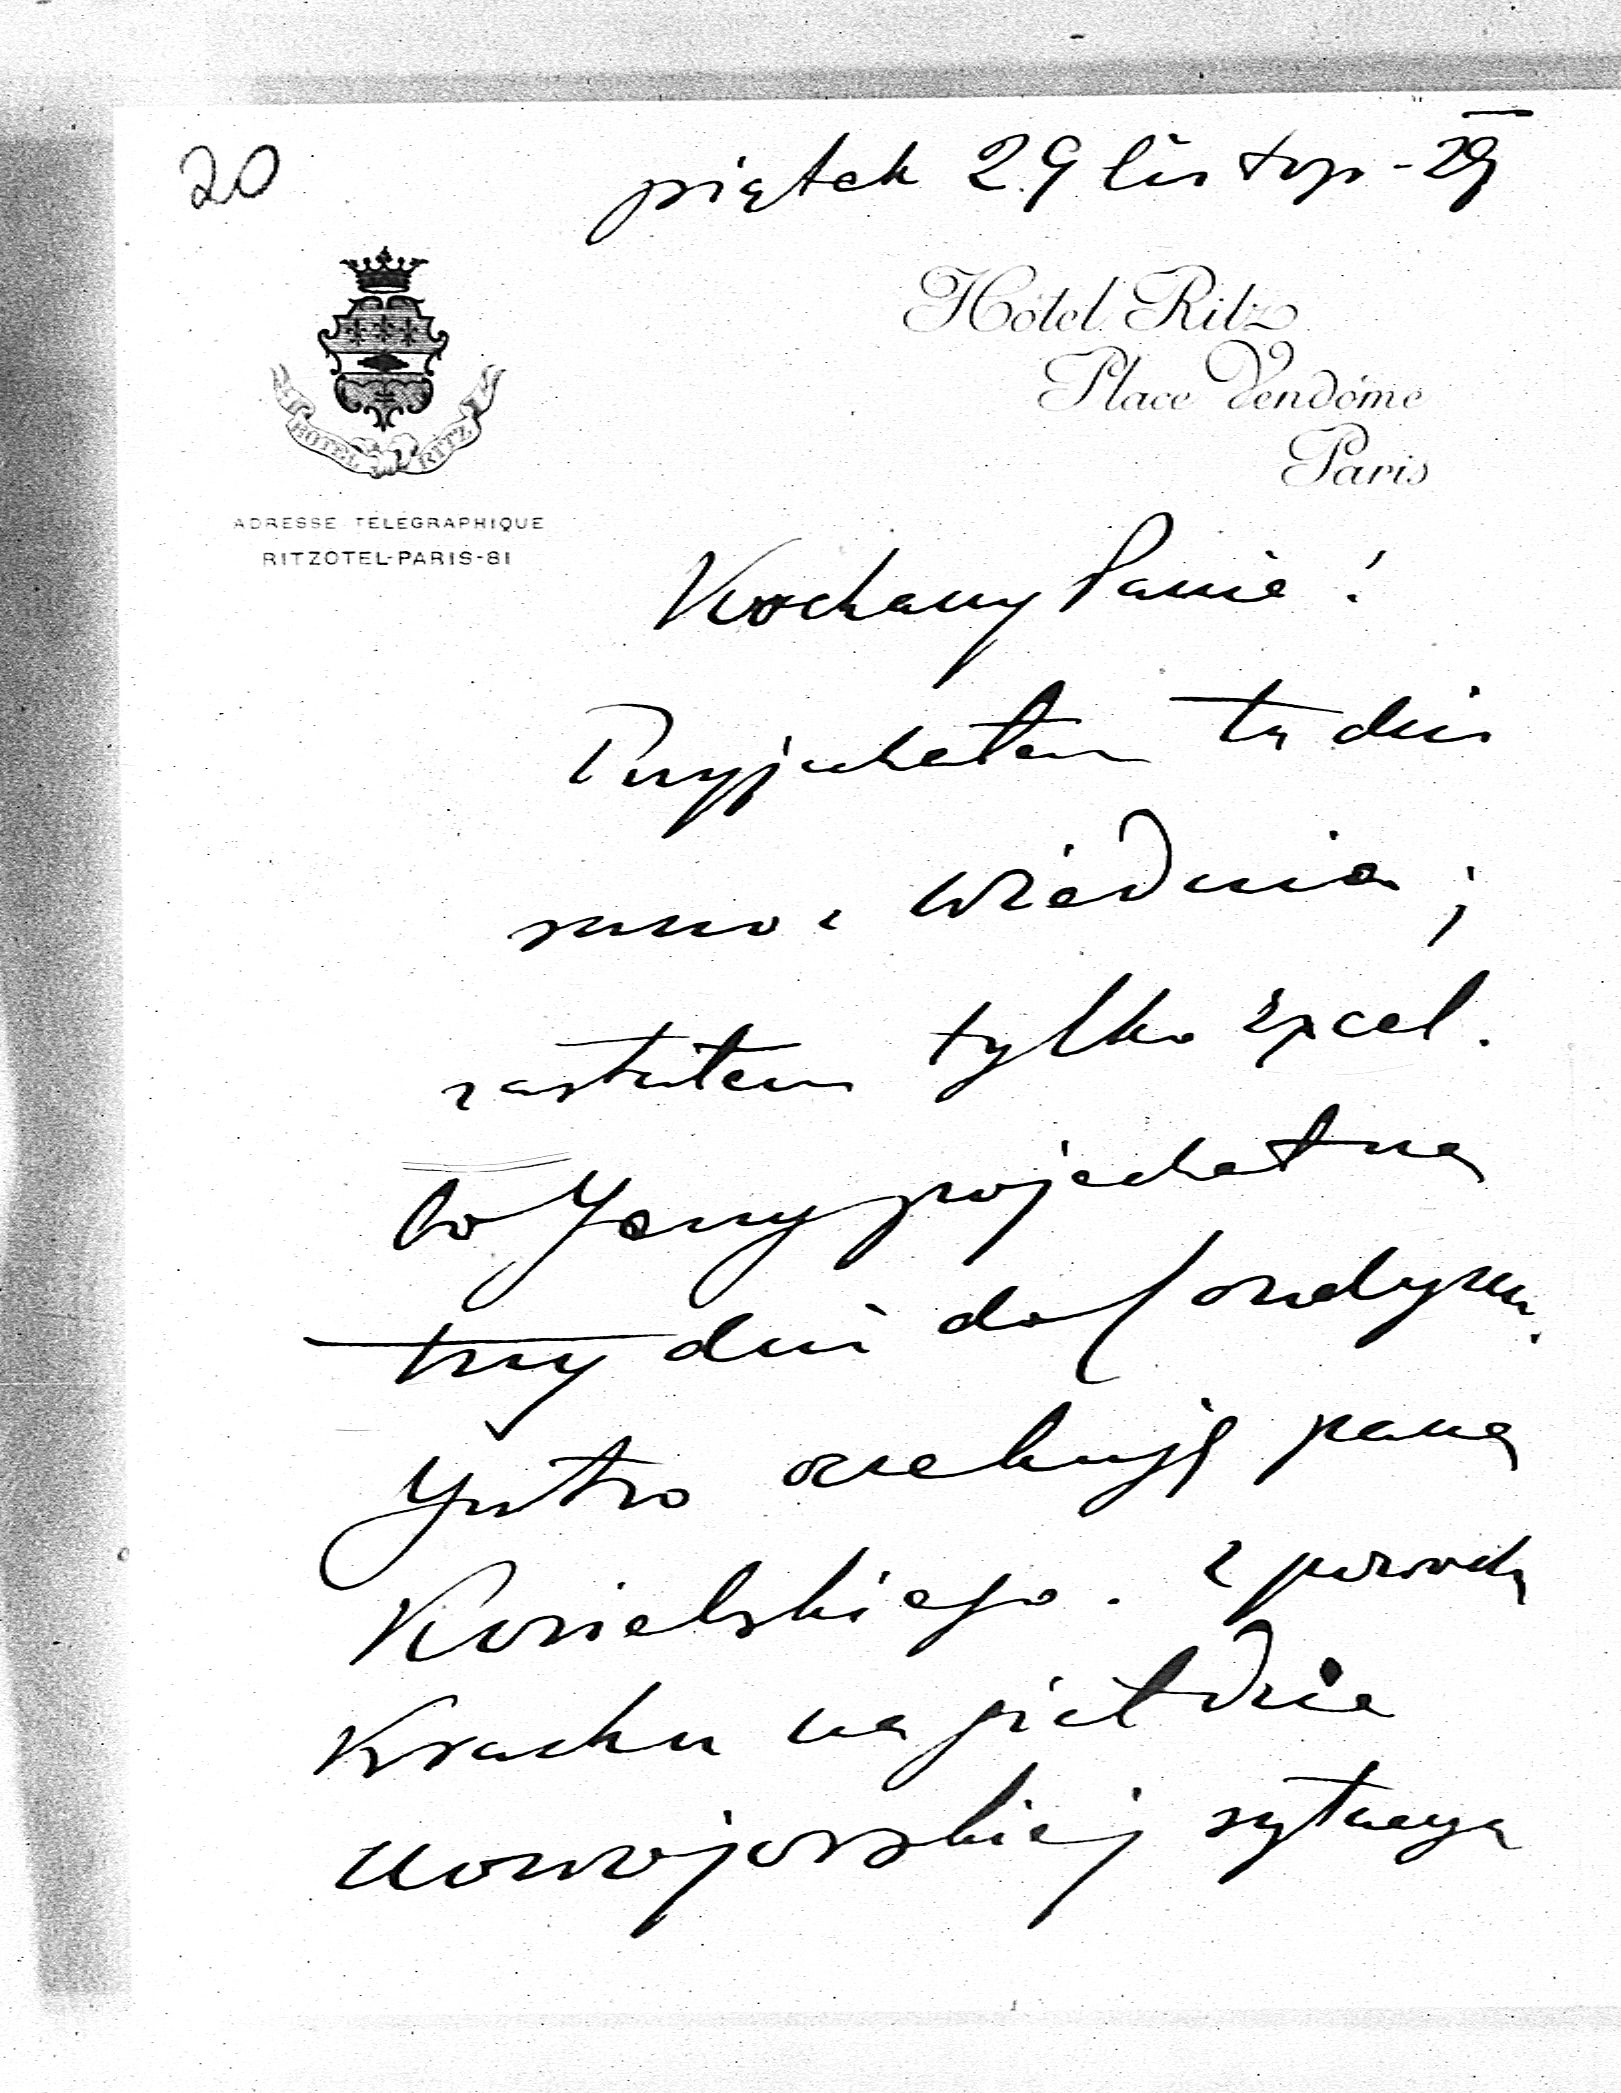 20
piątek 29 listop - 29
Hôtel Ritz
Place Vendôme
Paris
HOTEL RITZ
ADRESSE TÉLÉGRAPHIQUE
RITZOTEL-PARIS-81
Kochany Panie!
Przyjechałem tu dziś
rano z Wiednia;
zastałem tylko Excel.
bo Jerzy pojechał na
trzy dni do Londynu.
Jutro oczekuję pana
Kozielskiego. Z powodu
Krachu na giełdzie
nowojorskiej sytuacja